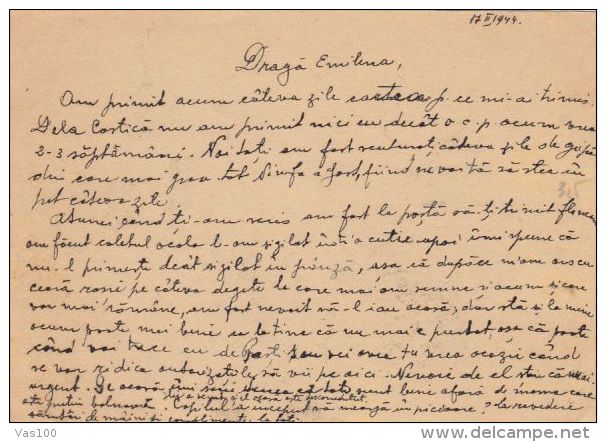 17 II 1944.
Dragă Emilena,
Am primit acum câteva zile cartea p. ce mi-ai trimis.
Dela Costică nu am primit nici eu decât o c.p. acum vreo
2-3 săptămâni. Noi toți am fost câteva zile de gripă
din care mai greu tot a fost, fiind nevoită să stea în
pat câteva zile.
Atunci când ți-am scris am fost la poștă să-ți trimit
am făcut coletul acolo l-am sigilat într'o cutie apoi îmi spune că
nu-l primește decât sigilat în pânză, așa că după ce m'am ars cu
ceară roșie pe câteva degete la care mai am semne și acum și care
vor mai rămâne, am fost nevoit să-l iau acasă; dar stă și la mine
acum poate mai bine ca la tine că nu mai e purtat, așa că poate
când vei trece cu de Paști sau vei avea tu vreo ocazie când
se vor ridica autorizațiile să vii pe aici. Nevoie de el știu că nu ai
urgent. De acasă îmi scrie că toți sunt bine afară de mama care
este puțin bolnavă. Copilul a început să meargă în picioare. La revedere
sărutări de mâini și complimente la toți.
325
Vas100
www.delcampe.net